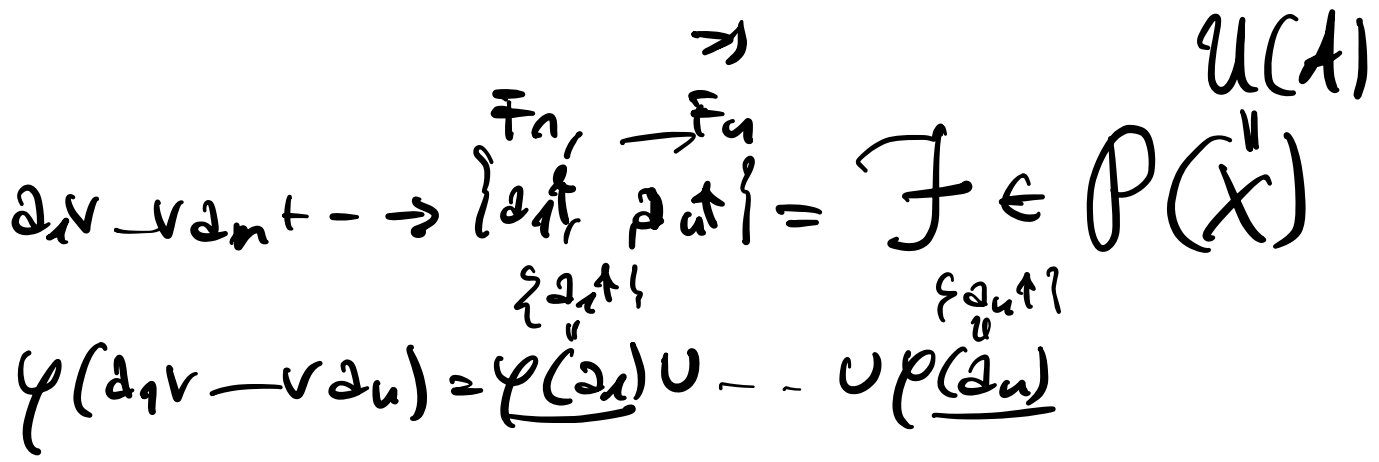 → U(A)
F₁, → Fₙ =
a₁∨ — ∨aₙ ⊢ - → {a₁↑, aₙ↑} = F ∈ P(X)
{a₁↑} {aₙ↑}
= =
φ(a₁∨ — ∨aₙ) = φ(a₁) ∪ - - - ∪ φ(aₙ)